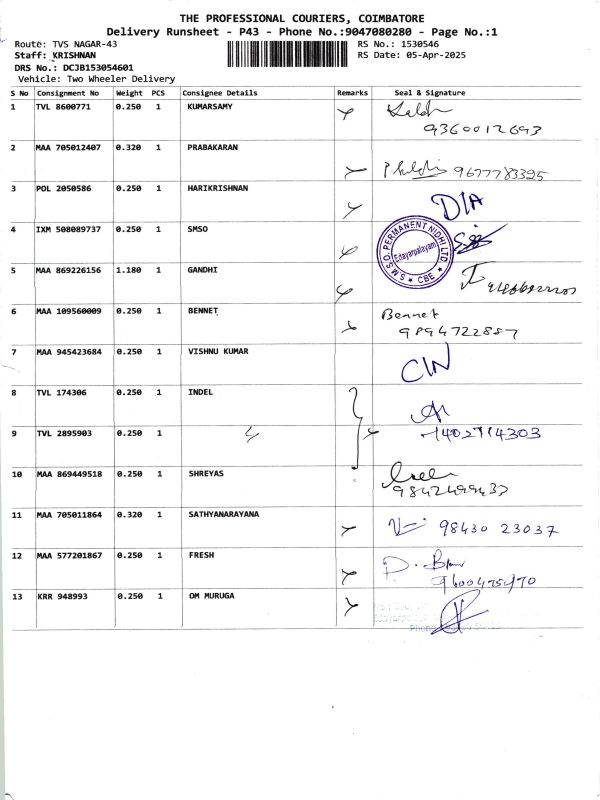 THE PROFESSIONAL COURIERS, COIMBATORE
Delivery Runsheet - P43 - Phone No.:9047080280 - Page No.:1
Route: TVS NAGAR-43 RS No.: 1530546
Staff: KRISHNAN RS Date: 05-Apr-2025
DRS No.: DCJB153054601
Vehicle: Two Wheeler Delivery
S No Consignment No Weight PCS Consignee Details Remarks Seal & Signature
1 TVL 8600771 0.250 1 KUMARSAMY
9360012693
2 MAA 705012407 0.320 1 PRABAKARAN
9677783395
3 POL 2050586 0.250 1 HARIKRISHNAN D/A
4 IXM 508089737 0.250 1 SMSO S.M.S.O. PERMANENT NIDHI LTD. Edayarpalayam CBE
5 MAA 869226156 1.180 1 GANDHI
6 MAA 109560009 0.250 1 BENNET Bennet
9894722887
7 MAA 945423684 0.250 1 VISHNU KUMAR
8 TVL 174306 0.250 1 INDEL
9 TVL 2895903 0.250 1
10 MAA 869449518 0.250 1 SHREYAS
11 MAA 705011864 0.320 1 SATHYANARAYANA 98430 23037
12 MAA 577201867 0.250 1 FRESH
13 KRR 948993 0.250 1 OM MURUGA